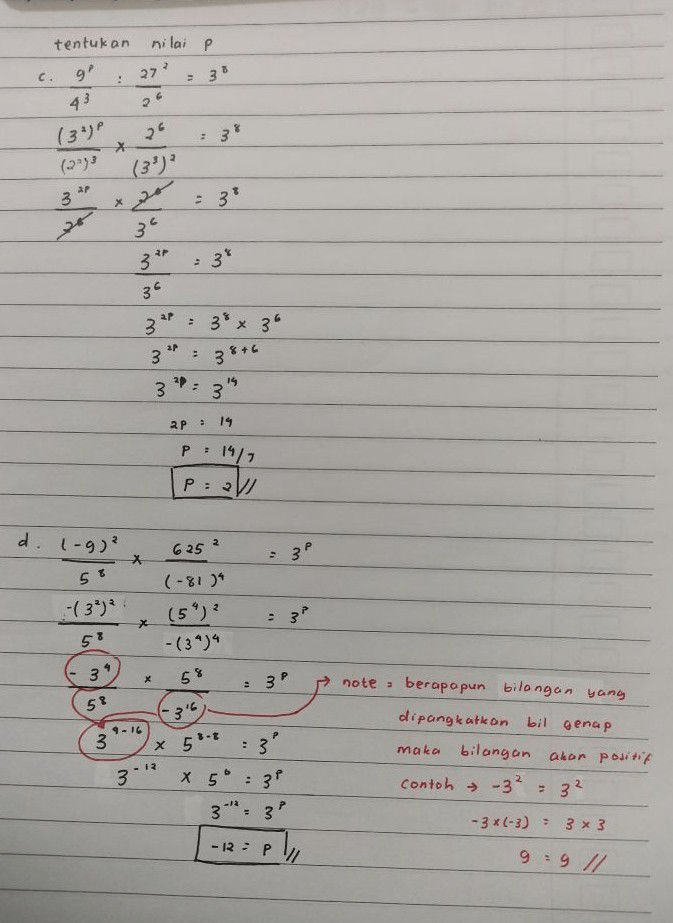 tentukan nilai p
c. 9^p/4^3 : 27^2/2^6 = 3^8
(3^2)^p/(2^2)^3 × 2^6/(3^3)^2 = 3^8
3^2p/2^6 × 2^6/3^6 = 3^8
3^2p/3^6 = 3^8
3^2p = 3^8 × 3^6
3^2p = 3^8+6
3^2p = 3^14
2p = 14
P = 14/7
P = 2//
d. (-9)^2/5^8 × 625^2/(-81)^4 = 3^p
-(3^2)^2/5^8 × (5^4)^2/-(3^4)^4 = 3^p
-3^4/5^8 × 5^8/-3^16 = 3^p
3^4-16 × 5^8-8 = 3^p
3^-12 × 5^0 = 3^p
3^-12 = 3^p
-12 = P//
→ note = berapapun bilangan yang
dipangkatkan bil genap
maka bilangan akan positif
contoh → -3^2 = 3^2
-3×(-3) = 3×3
9 = 9 //